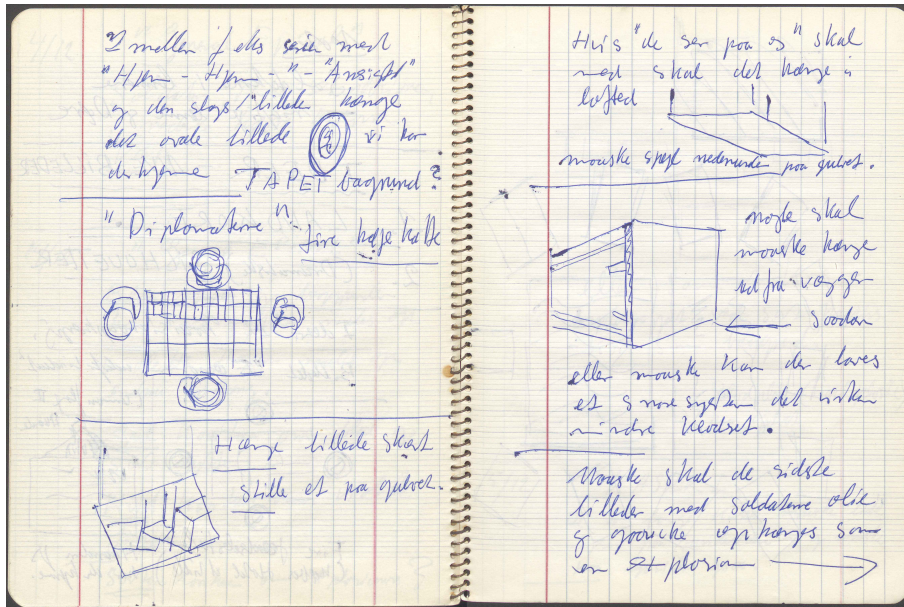 I mellem f eks serien med
"Hjern - Hjern - " - "Ansigt"
og den slags billede hænge
det ovale billede vi har
derhjemme TAPET bagrund?
"Diplomaterne" - fire høje hatte
Hænge billede skævt
stille et paa gulvet.
Hvis "de ser paa os" skal
med skal det hænge i
lofted
maaske spejl nedenunder paa gulvet.
nogle skal
maaske hænge
ud fra væggen
saadan
eller maaske kan der laves
et snoresystem det virker
mindre klodset.
Maaske skal de sidste
billeder med soldaterne olie
og gouache ophænges som
en explosion